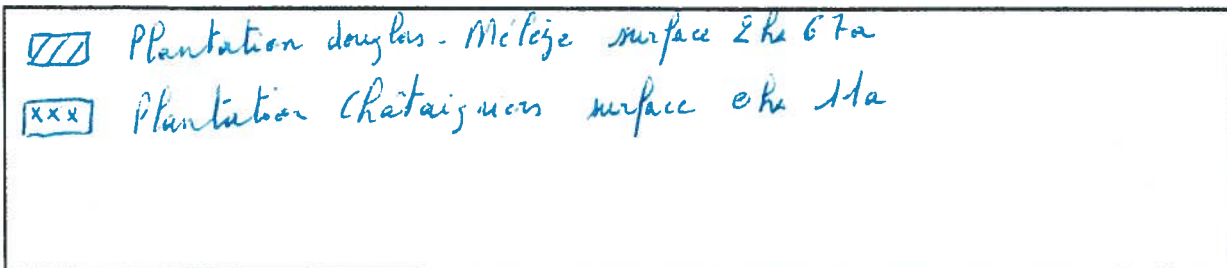 Plantation douglas - Mélèze surface 2 ha 67a
xxx Plantation Châtaigniers surface 0 ha 11a